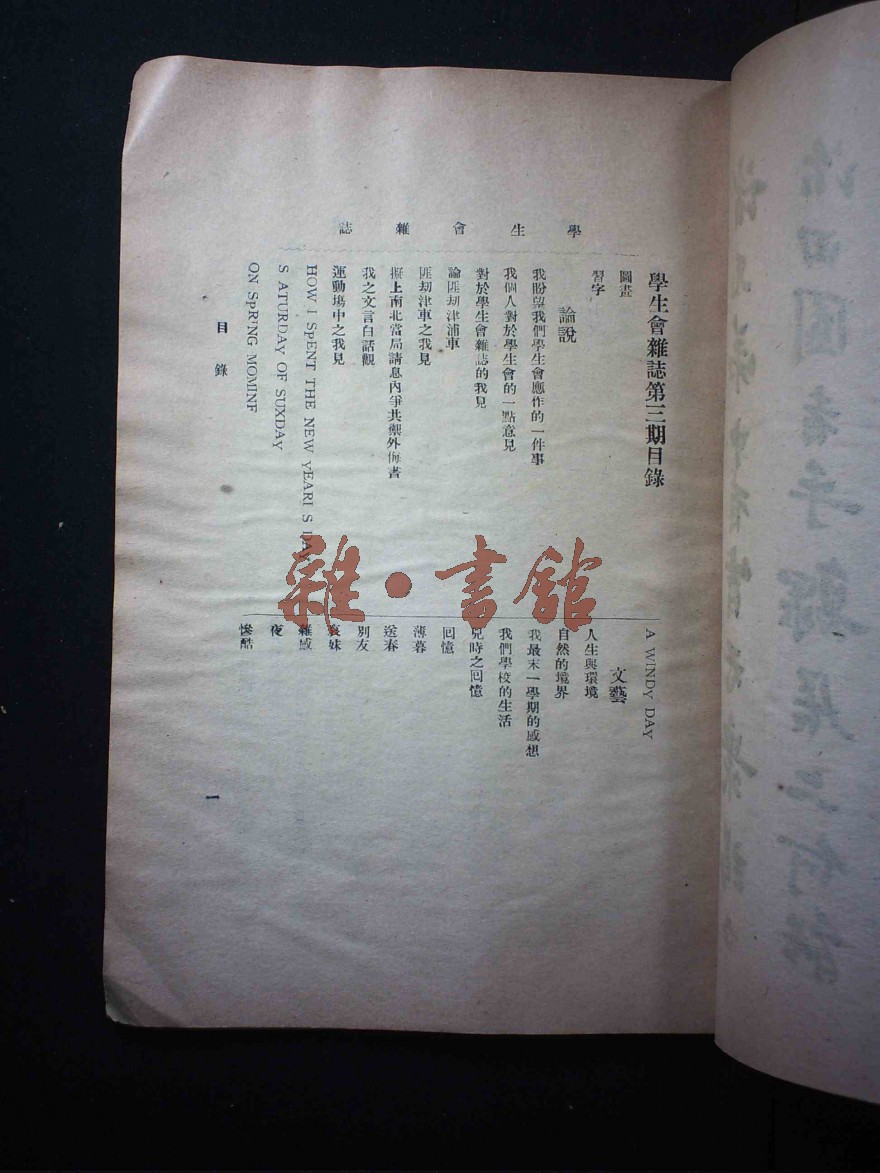 學生會雜誌
學生會雜誌第三期目錄
圖畫
習字
論說
我盼望我們學生會應作的一件事
我個人對於學生會的一點意見
對於學生會雜誌的我見
論匪刧津浦車
匪刧津車之我見
擬上南北當局請息內爭共禦外侮書
我之文言白話觀
運動塲中之我見
HOW I SPENT THE NEW YEARI S DAY
S ATURDAY OF SUXDAY
ON SPRING MOMINF
A WINDY DAY
文藝
人生與環境
自然的境界
我最末一學期的感想
我們學校的生活
兒時之回憶
回憶
薄暮
送春
別友
哀妹
雜感
夜
慘酷
目錄
一
雜·書館